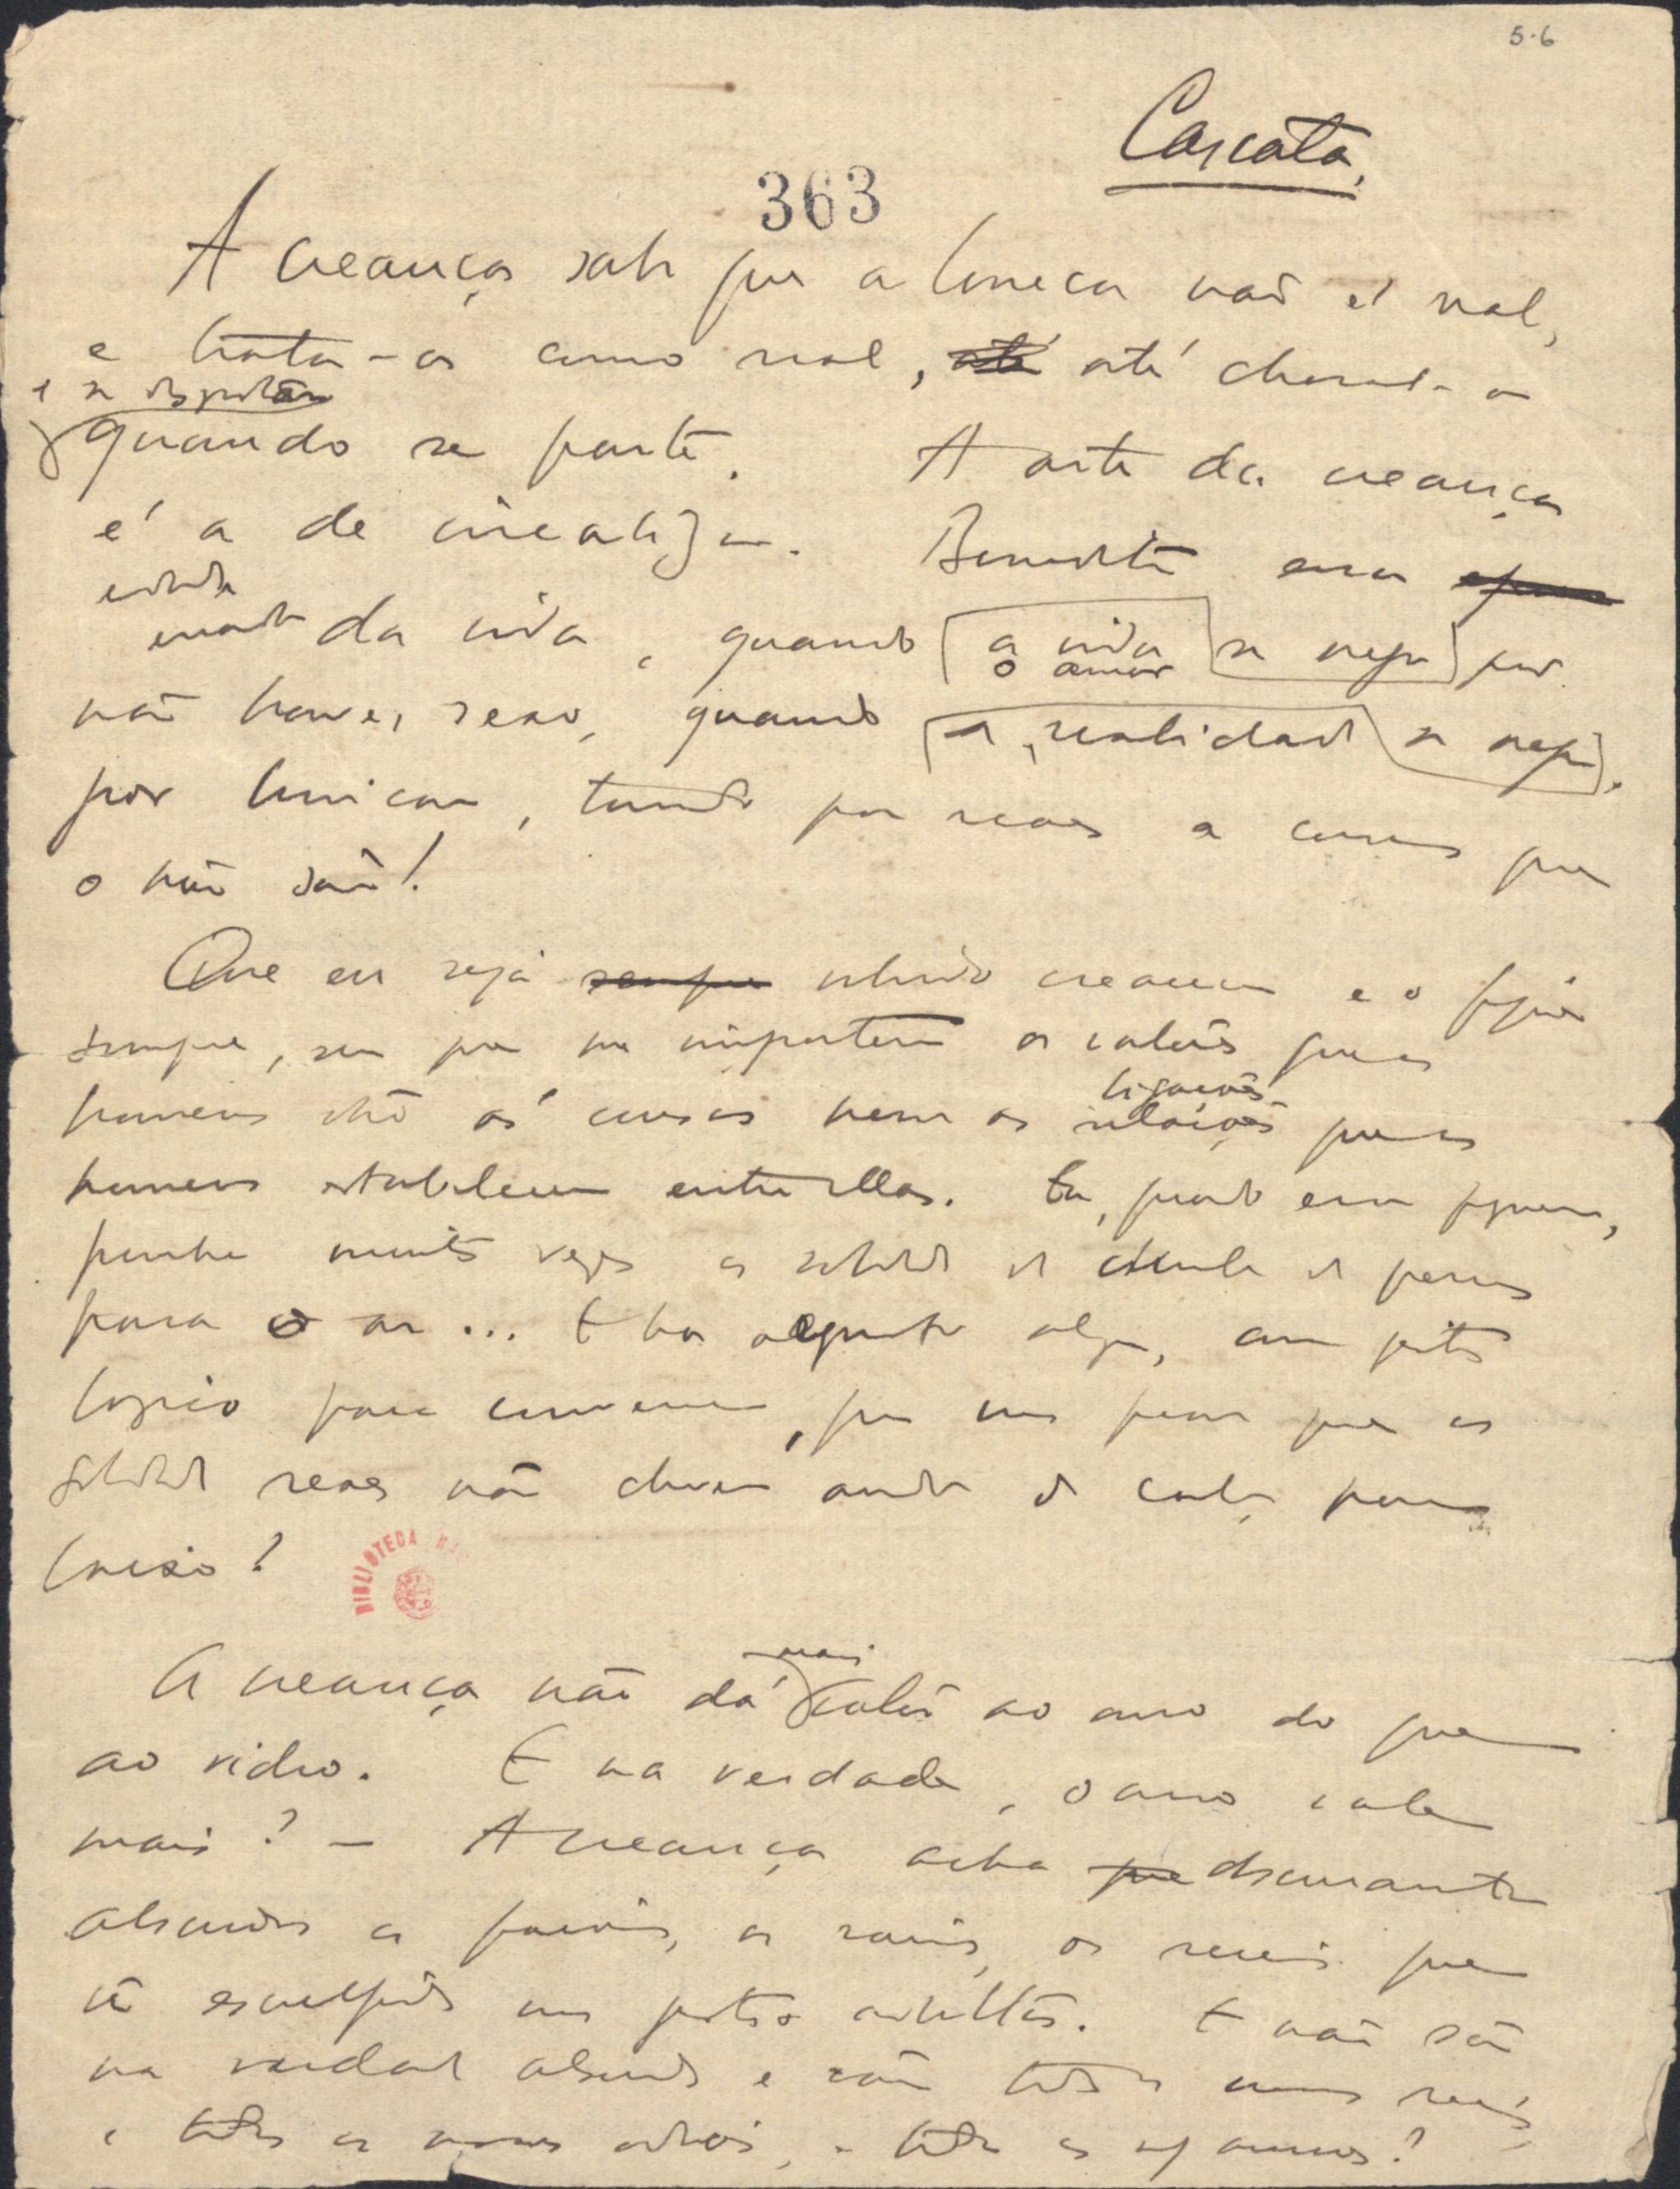 5-6
Cascata,
363
A creança sabe que a boneca não é real,
e trata-a como real, até até choral-a
e se desgostar
quando se parte. A arte da creança
é a de irrealizar. Bemdita essa
edade
errada da vida, quando a vida se nega por
o amor
não haver sexo, quando a realidade se nega
por brincar, tomando por reaes a cousas que
o não são!
Que eu seja sempre volvido creança e o fique
sempre, sem que me importem os valores que os
homens dão ás cousas nem as relações que os
ligações
homens estabelecem entre ellas. Eu, quando era pequeno,
punha muitas vezes os soldados de chumbo de pernas
para o ar... E ha argumento algum, com geito
logico para convencer, que nos prove que os
soldados reaes não devem andar de cabeça para
baixo?
mais
A creança não dá valor ao ouro do que
ao vidro. E na verdade, o ouro vale
mais? — A creança acha que obscuramente
absurdos as paixões, as raivas, os receios que
vê esculpidos em gestos adultos. E não são
na verdade absurdos e vãos todos os nossos receios,
e todos os nossos odios, e todos os nossos amores?
BIBLIOTECA